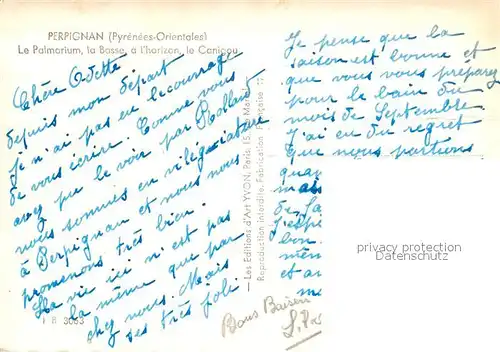 PERPIGNAN (Pyrénées-Orientales)
Le Palmarium, la Basse, à l'horizon, le Canigou
Chère Odette
depuis mon départ
je n'ai pas eu le courage
de vous écrire. Comme vous
avez pu le voir par Rolland
nous sommes en villégiature
à Perpignan et nous nous
promenons très bien.
La vie ici n'est pas
la même que par
chez nous. Mais
ses très joli
— Les Editions d'Art YVON, Paris, 15,
Reproduction interdite. Fabrication Française
Je pense que la
saison est bonne et
que vous vous préparez
pour le bain du
mois de Septembre
J'ai eu du regret
que nous partions
quan
mais
de
J'espè
bon
mêm
et
me
privacy protection
Datenschutz
Bons Baisers